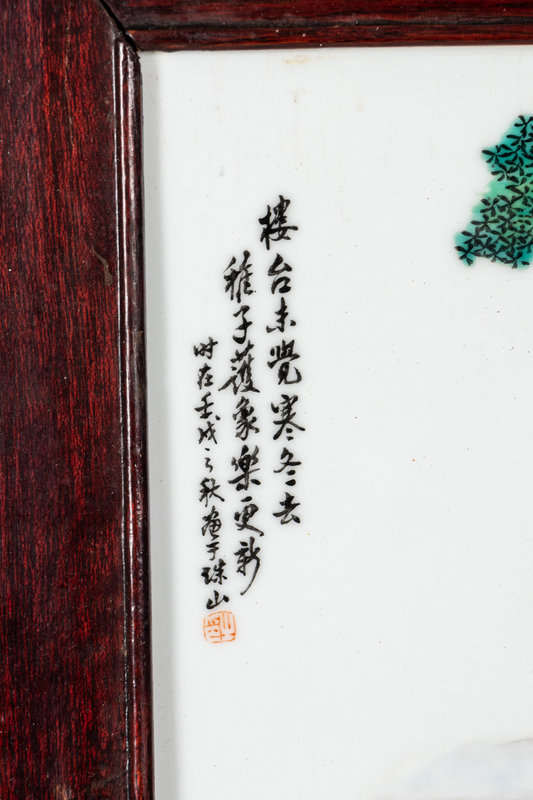 樓台未覺寒冬去
稚子獲象樂更新
时在壬戌之秋畫于珠山